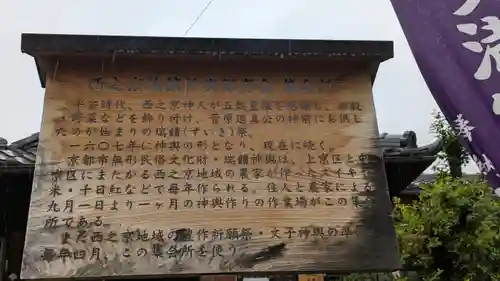 平安時代、西之京神人が五穀豊穣を感謝し、新穀
野菜などを飾り付け、菅原道真公の神前にお供し
たのが始まりの瑞饋(ずいき)祭。
一六〇七年に神輿の形となり、現在に続く。
京都市無形民俗文化財・瑞饋神輿は、上京区と中
京区にまたがる西之京地域の農家が作ったズイキや
米・千日紅などで毎年作られる。住人と農家による
九月一日より一ヶ月の神輿作りの作業場がこの集会
所である。
また西之京地域の豊作祈願祭・文子神輿の準
毎年四月、この集会所を使う
奉